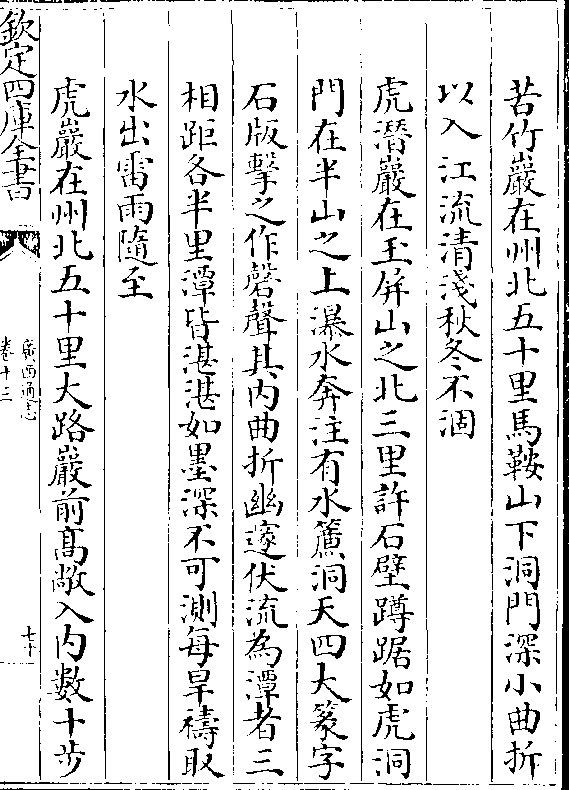 苦竹巖在州北五十里馬鞍山下洞門深小曲折
以入江流清淺秋冬不涸
虎潛巖在玉屏山之北三里許石壁蹲踞如虎洞
門在半山之上瀑水奔注有水簾洞天四大篆字
石版擊之作磬聲其内曲折幽邃伏流為潭者三
相距各半里潭皆湛湛如墨深不可測每旱禱取
水出雷雨隨至
虎巖在州北五十里大路巖前髙敞入内數十步
欽定四庫全書
廣西通志
卷十三
七十